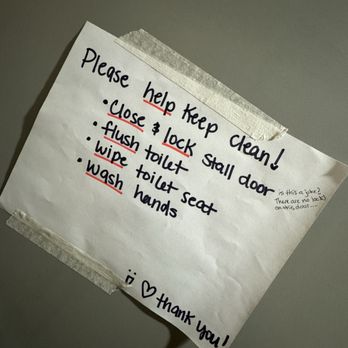 Please help keep clean!
• close & lock stall door
• flush toilet
• wipe toilet seat
• wash hands
is this a joke?
There are no locks
on the door...
:) ♡ thank you!